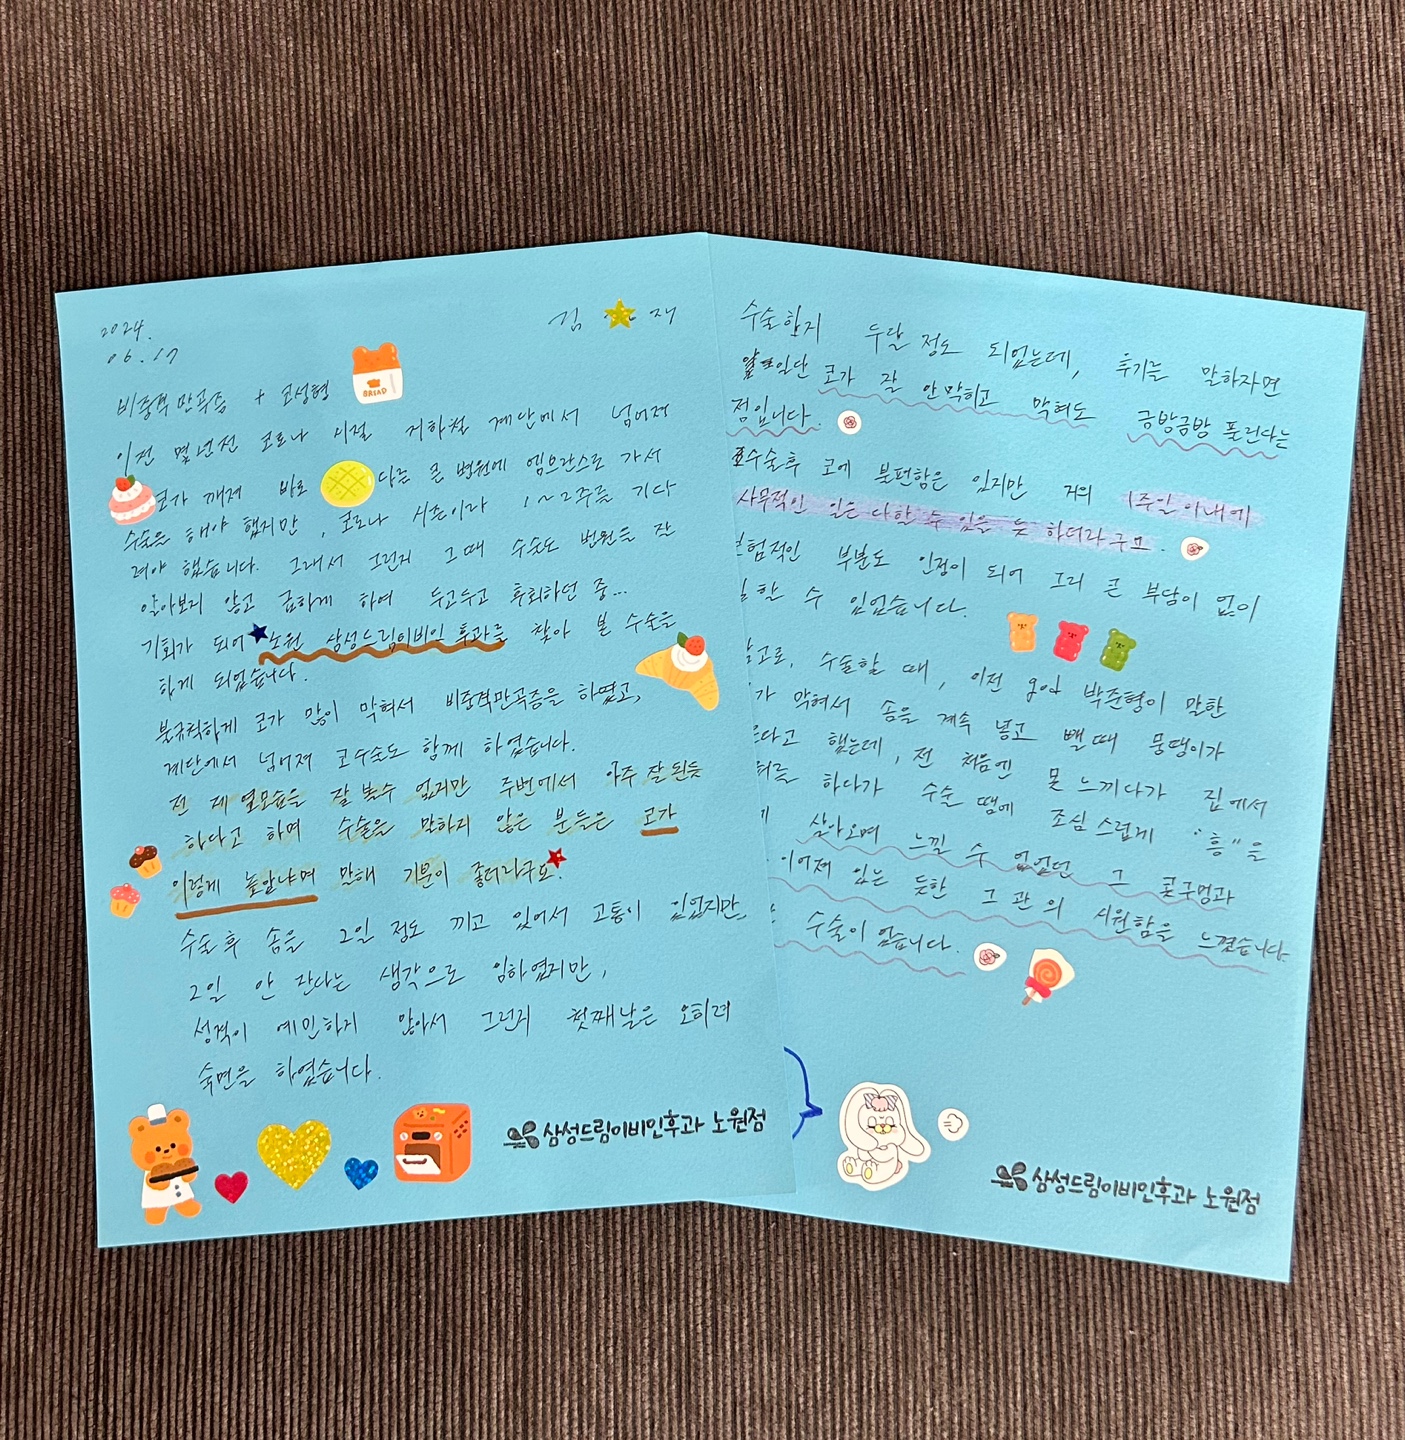 2024.
06.17
김 재
비중격만곡증 + 코성형
BREAD
이전 몇년전 코로나 시절 지하철 계단에서 넘어져
코가 깨져 바로 다른 큰 병원에 엠뷰란스로 가서
수술을 해야 했지만, 코로나 시즌이라 1~2주를 기다
려야 했습니다. 그래서 그런지 그 때 수술도 병원을 잘
알아보지 않고 급하게 하여 두고두고 후회하던 중...
기회가 되어 노원 삼성드림이비인후과를 찾아 본 수술을
하게 되었습니다.
불규칙하게 코가 많이 막혀서 비중격만곡증을 하였고,
계단에서 넘어져 코수술도 함께 하였습니다.
전 제 옆모습을 잘 볼수 없지만 주변에서 아주 잘된듯
하다고 하며 수술을 말하지 않은 분들은 코가
이렇게 높았냐며 말해 기분이 좋더라구요.
수술후 솜을 2일 정도 끼고 있어서 고통이 있었지만,
2일 안 잔다는 생각으로 임하였지만,
성격이 예민하지 않아서 그런지 첫째날은 오히려
숙면을 하였습니다.
삼성드림이비인후과 노원점
수술한지 두달 정도 되었는데, 후기를 말하자면
일단 코가 잘 안막히고 막혀도 금방금방 풀린다는
점입니다.
수술후 코에 불편함은 있지만 거의 1주일 이내에
사무적인 일은 다할 수 있을 듯 하더라구요.
험적인 부분도 인정이 되어 그리 큰 부담이 없이
할 수 있었습니다.
고로, 수술할 때, 이전 god 박준형이 말한
가 막혀서 솜을 계속 넣고 뺄때 뭉탱이가
다고 했는데, 전 처음엔 못 느끼다가 집에서
하다가 수술 땜에 조심스럽게 "흥"을
살아오며 느낄 수 없었던 그 콧구멍과
이어져 있는 듯한 그 관의 시원함을 느꼈습니다
수술이 없습니다.
삼성드림이비인후과 노원점